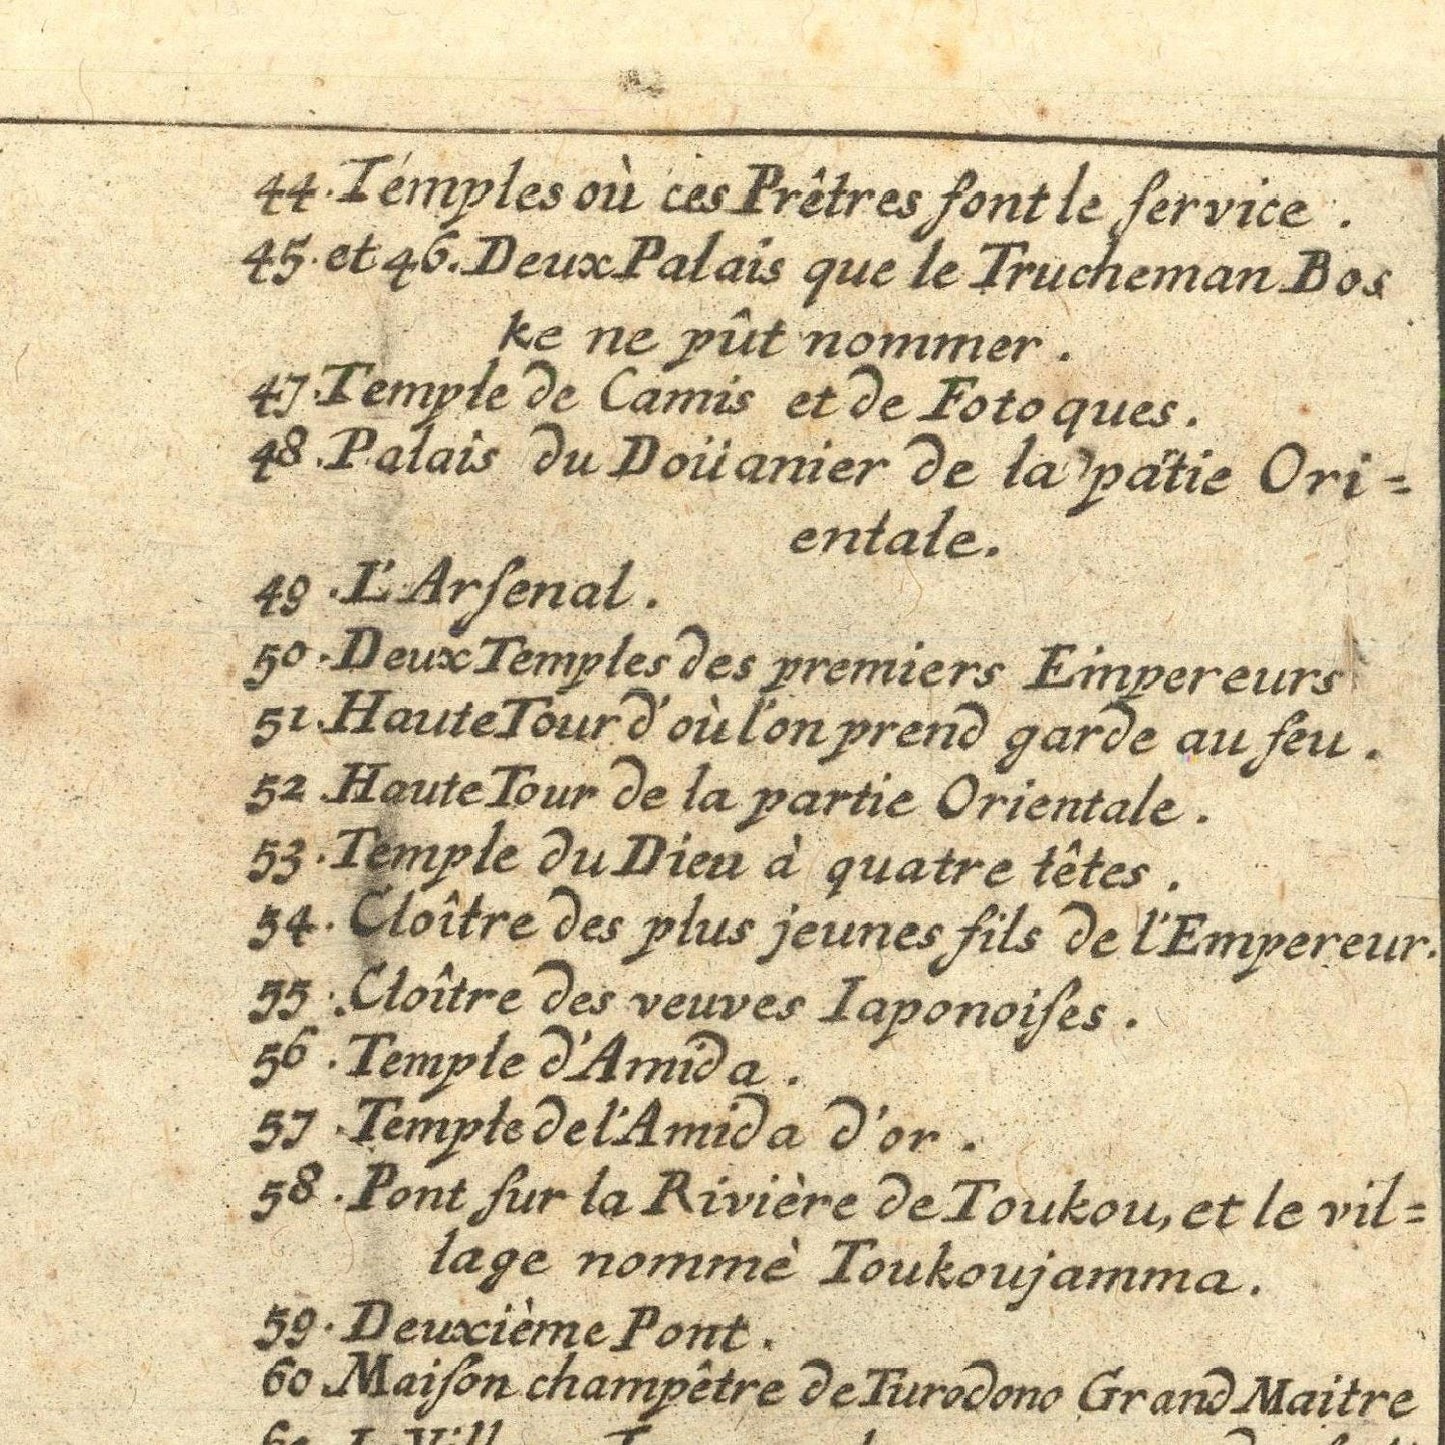 44. Témples où ces Prêtres ſont le ſervice.
45. et 46. Deux Palais que le Trucheman Bos
ke ne pût nommer.
47. Temple de Camis et de Fotoques.
48. Palais du Doüanier de la patie Ori=
entale.
49. L'Arſenal.
50. Deux Temples des premiers Empereurs
51. Haute Tour d'où l'on prend garde au feu.
52. Haute Tour de la partie Orientale.
53. Temple du Dieu à quatre têtes.
54. Cloître des plus jeunes fils de l'Empereur.
55. Cloître des veuves Iaponoiſes.
56. Temple d'Amida.
57. Temple de l'Amida d'or.
58. Pont ſur la Rivière de Toukou, et le vil=
lage nommè Toukoujamma.
59. Deuxième Pont.
60. Maiſon champêtre de Turodono Grand Maitre